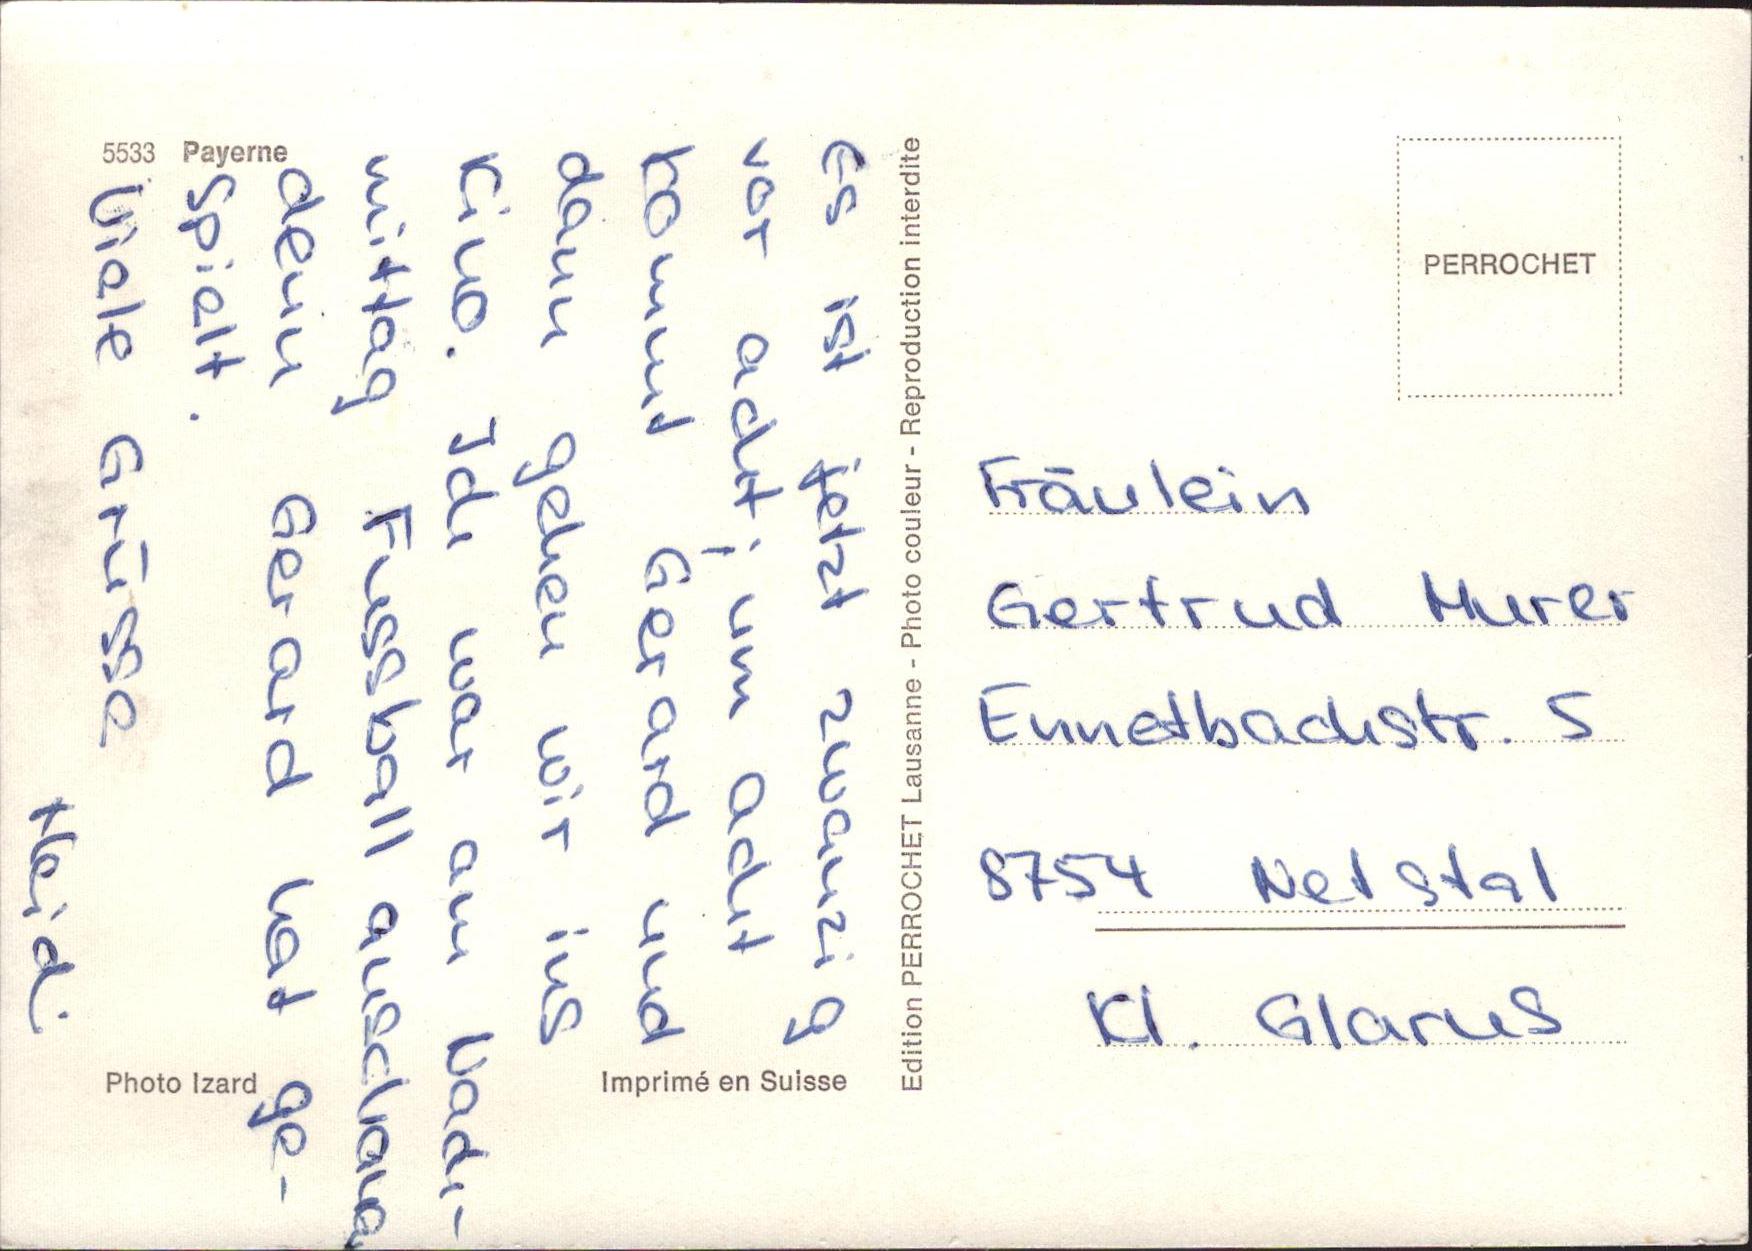 5533 Payerne
Es ist jetzt zwanzig
vor acht; um acht
kommt Gerard und
dann gehen wir ins
Kino. Ich war am Nach-
mittag Fussball anschauen
denn Gerard hat ge-
spielt.
Viele Grüsse
Heidi
Photo Izard
Imprimé en Suisse
Edition PERROCHET Lausanne - Photo couleur - Reproduction interdite
PERROCHET
Fräulein
Gertrud Murer
Ennetbachstr. 5
8754 Netstal
Kt. Glarus